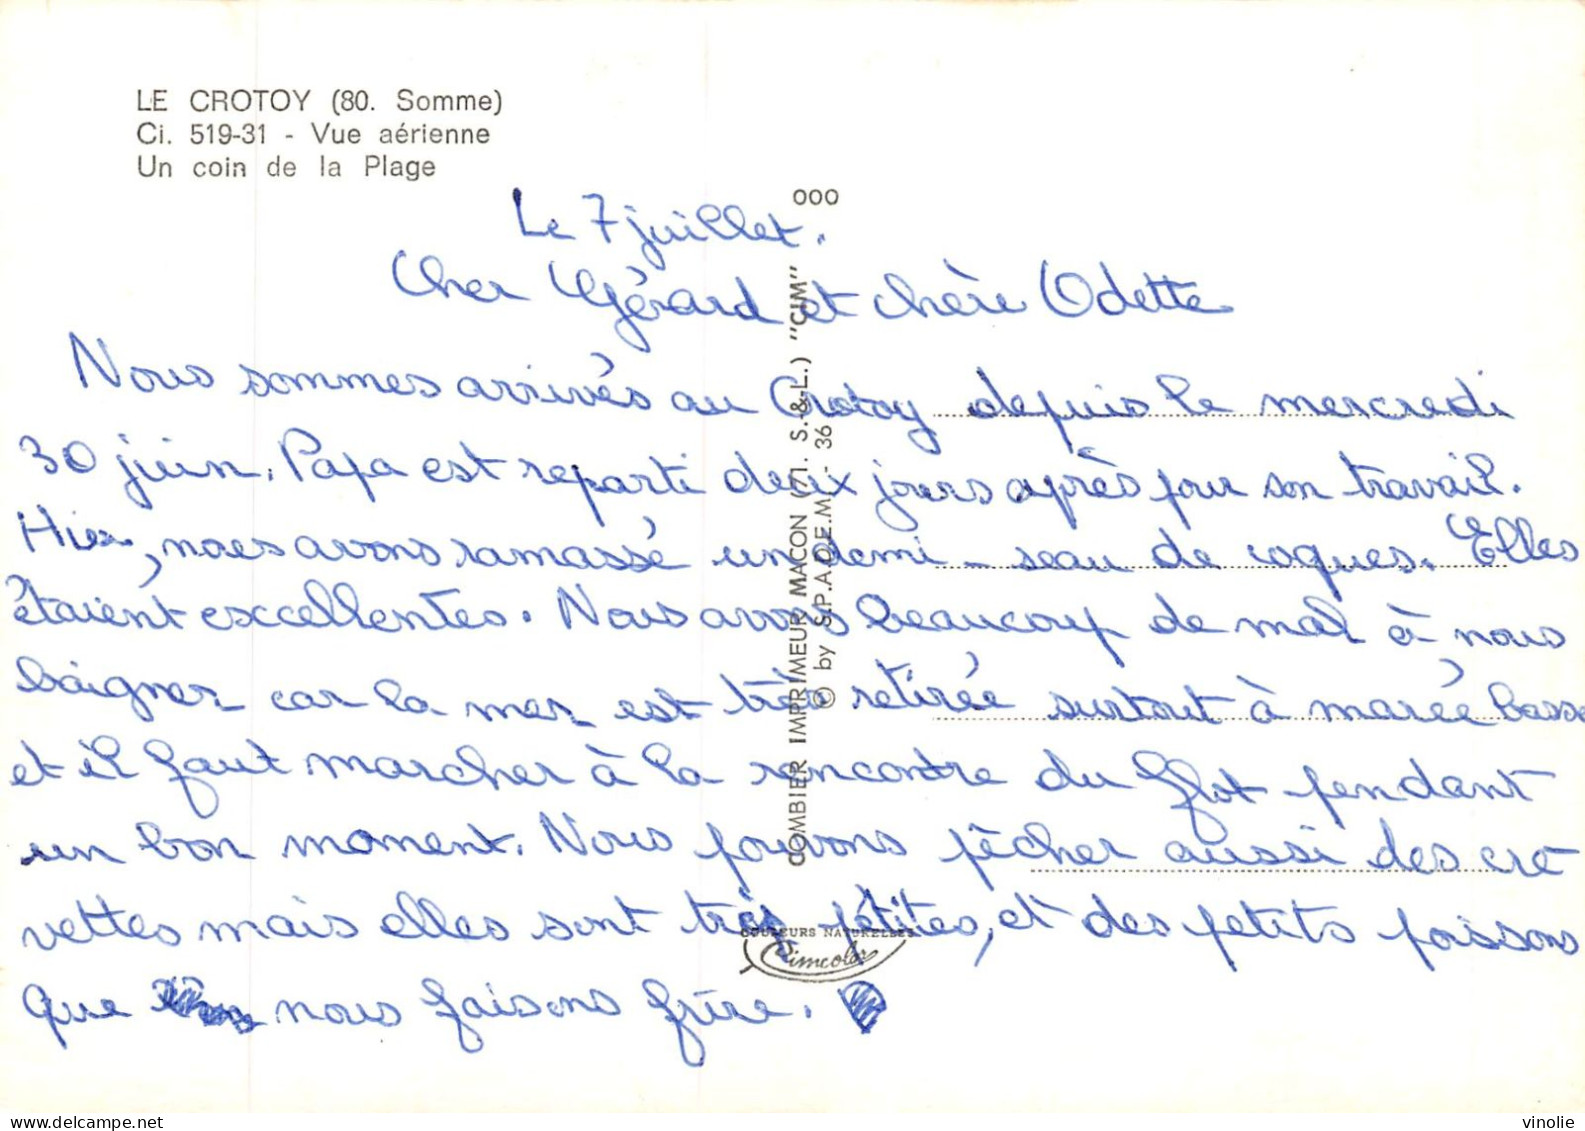 LE CROTOY (80. Somme)
Ci. 519-31 - Vue aérienne
Un coin de la Plage
OOO
Le 7 juillet.
Cher Gérard et chère Odette
Nous sommes arrivés au Crotoy depuis le mercredi
30 juin. Papa est reparti deux jours après pour son travail.
Hier, nous avons ramassé un demi-seau de coques. Elles
étaient excellentes. Nous avons beaucoup de mal à nous
baigner car la mer est très retirée surtout à marée basse
et il faut marcher à la rencontre du flot pendant
un bon moment. Nous pouvons pêcher aussi des cre
vettes mais elles sont très petites, et des petits poissons
que nous faisons frire.
COMBIER IMPRIMEUR MACON (71. S.-&-L.) "CIM"
© by S.P.A.D.E.M. - 36
COULEURS NATURELLES
Cimcolor
delcampe.net
vinolie